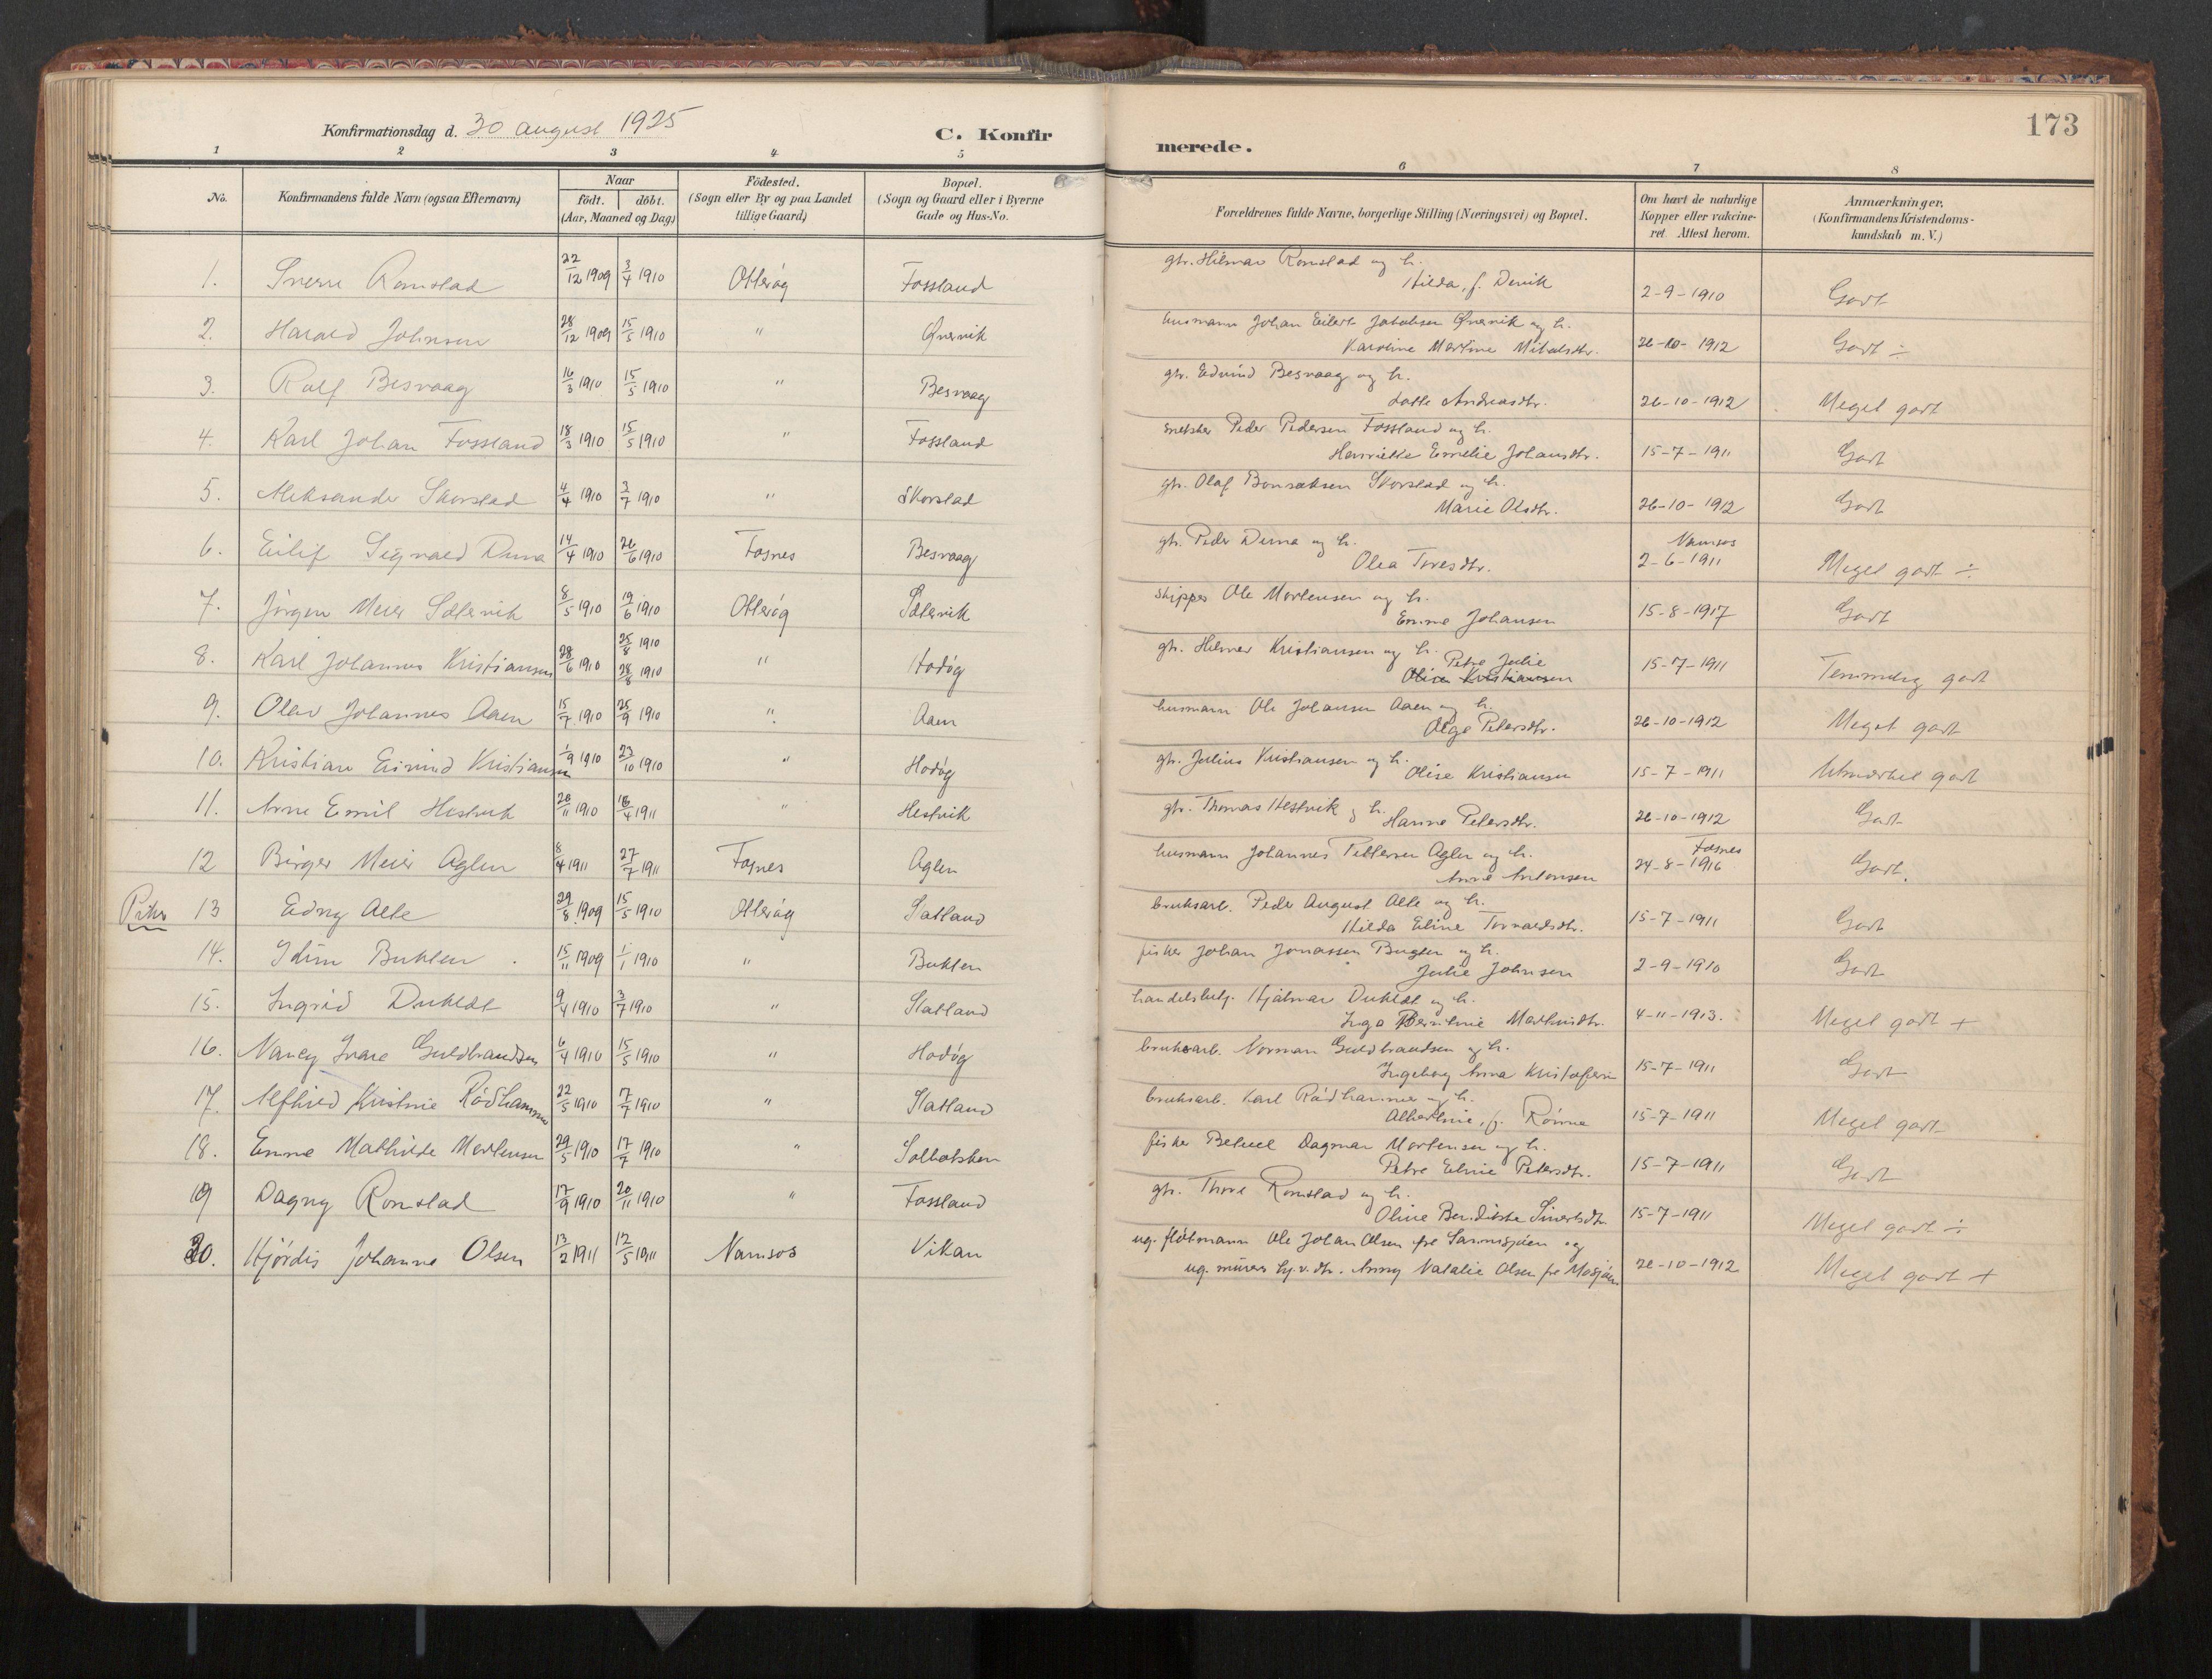 173
Konfirmationsdag d. 30 august 1925
C. Konfirmerede.
1 2 3 4 5 6 7 8
No. Konfirmandens fulde Navn (ogsaa Efternavn) Naar födt. döbt. (Aar, Maaned og Dag) Födested. (Sogn eller By og paa Landet tillige Gaard) Bopæl. (Sogn og Gaard eller i Byerne Gade og Hus-No. Forældrenes fulde Navne, borgerlige Stilling (Næringsvei) og Bopæl. Om havt de naturlige Kopper eller vakcineret. Attest herom. Anmærkninger. (Konfirmandens Kristendomskundskab m. V.)
1. Sverre Romstad 22/12 1909 3/4 1910 Otterøy Fossland gbr. Hilmar Romstad og h. Hilda, f. Dervik 2-9-1910 Godt
2. Harald Johnsen 28/12 1909 15/5 1910 " Qvernik husmann Johan Eilert Jakobsen Qvernik og h. Karoline Martine Mikalsdtr. 26-10-1912 Godt ÷
3. Rolf Besvaag 16/3 1910 15/5 1910 " Besvaag gbr. Edvind Besvaag og h. Lotte Andreasdtr. 26-10-1912 Meget godt
4. Karl Johan Fossland 18/3 1910 15/5 1910 " Fossland snekker Peder Pedersen Fossland og h. Henriette Emelie Johansdtr. 15-7-1911 Godt
5. Aleksander Skorstad 4/4 1910 3/7 1910 " Skorstad gbr. Olaf Bonsaksen Skorstad og h. Marie Olsdtr. 26-10-1912 Godt
6. Eilif Sigvald Duna 14/4 1910 26/6 1910 Fosnes Besvaag gbr. Peder Duna og h. Olea Toresdtr. Namsos 2-6-1911 Meget godt ÷
7. Jørgen Meier Sætervik 8/5 1910 19/6 1910 Otterøy Sætervik skipper Ole Mortensen og h. Emma Johansen 15-8-1917 Godt
8. Karl Johannes Kristiansen 28/6 1910 25/8 1910 28/8 1910 " Hodøy gbr. Helmer Kristiansen og h. Petra Julie Olise Kristiansen 15-7-1911 Temmelig godt
9. Olav Johannes Aaen 15/7 1910 25/9 1910 " Aaen husmann Ole Johansen Aaen og h. Olga Petersdtr. 26-10-1912 Meget godt
10. Kristian Eivind Kristiansen 1/9 1910 23/10 1910 " Hodøy gbr. Julius Kristiansen og h. Olise Kristiansen 15-7-1911 Utmærket godt
11. Arne Emil Hestvik 20/11 1910 16/4 1911 " Hestvik gbr. Thomas Hestvik og h. Hanna Petersdtr. 26-10-1912 Godt
12 Birger Meier Aglen 8/4 1911 27/7 1911 Fosnes Aglen husmann Johannes Pettersen Aglen og h. Anna Antonsen Fosnes 24-8-1916 Godt.
Piker 13 Edny Alte 29/8 1909 15/5 1910 Otterøy Statland bruksarb. Peder August Alte og h. Hilda Eline Torvaldsdtr. 15-7-1911 Godt
14. Idun Buklen 15/11 1909 1/1 1910 " Buklen fisker Johan Jonassen Buglen og h. Julie Johnsen 2-9-1910 Godt
15. Ingrid Dukldt 9/4 1910 3/7 1910 " Statland handelsbetj. Hjalmar Dukldt og h. Inga Berntine Martinsdtr. 4-11-1913. Meget godt +
16. Nancy Ivare Guldbrandsen 6/4 1910 15/5 1910 " Hodøy bruksarb. Norman Guldbrandsen og h. Ingeborg Anna Kristofersen 15-7-1911 Godt
17. Alfhild Kristine Rödhammer 22/5 1910 17/7 1910 " Statland bruksarb. Karl Rödhammer og h. Albertine, f. Rönne 15-7-1911 Meget godt
18. Emma Mathilde Mortensen 29/5 1910 17/7 1910 " Solbakken fisker Betuel Dagmar Mortensen og h. Petra Eline Petersdtr. 15-7-1911 Godt
19 Dagny Romstad 17/9 1910 20/11 1910 " Fossland gbr. Thore Romstad og h. Oline Bendikte Sivertsdtr. 15-7-1911 Meget godt ÷
20. Hjördis Johanna Olsen 13/2 1911 12/5 1911 Namsos Vikan ug. fløtmann Ole Johan Olsen fra Sannesjøen og ug. murer Anny Natalie Olsen fra Mosjøen 26-10-1912 Meget godt +